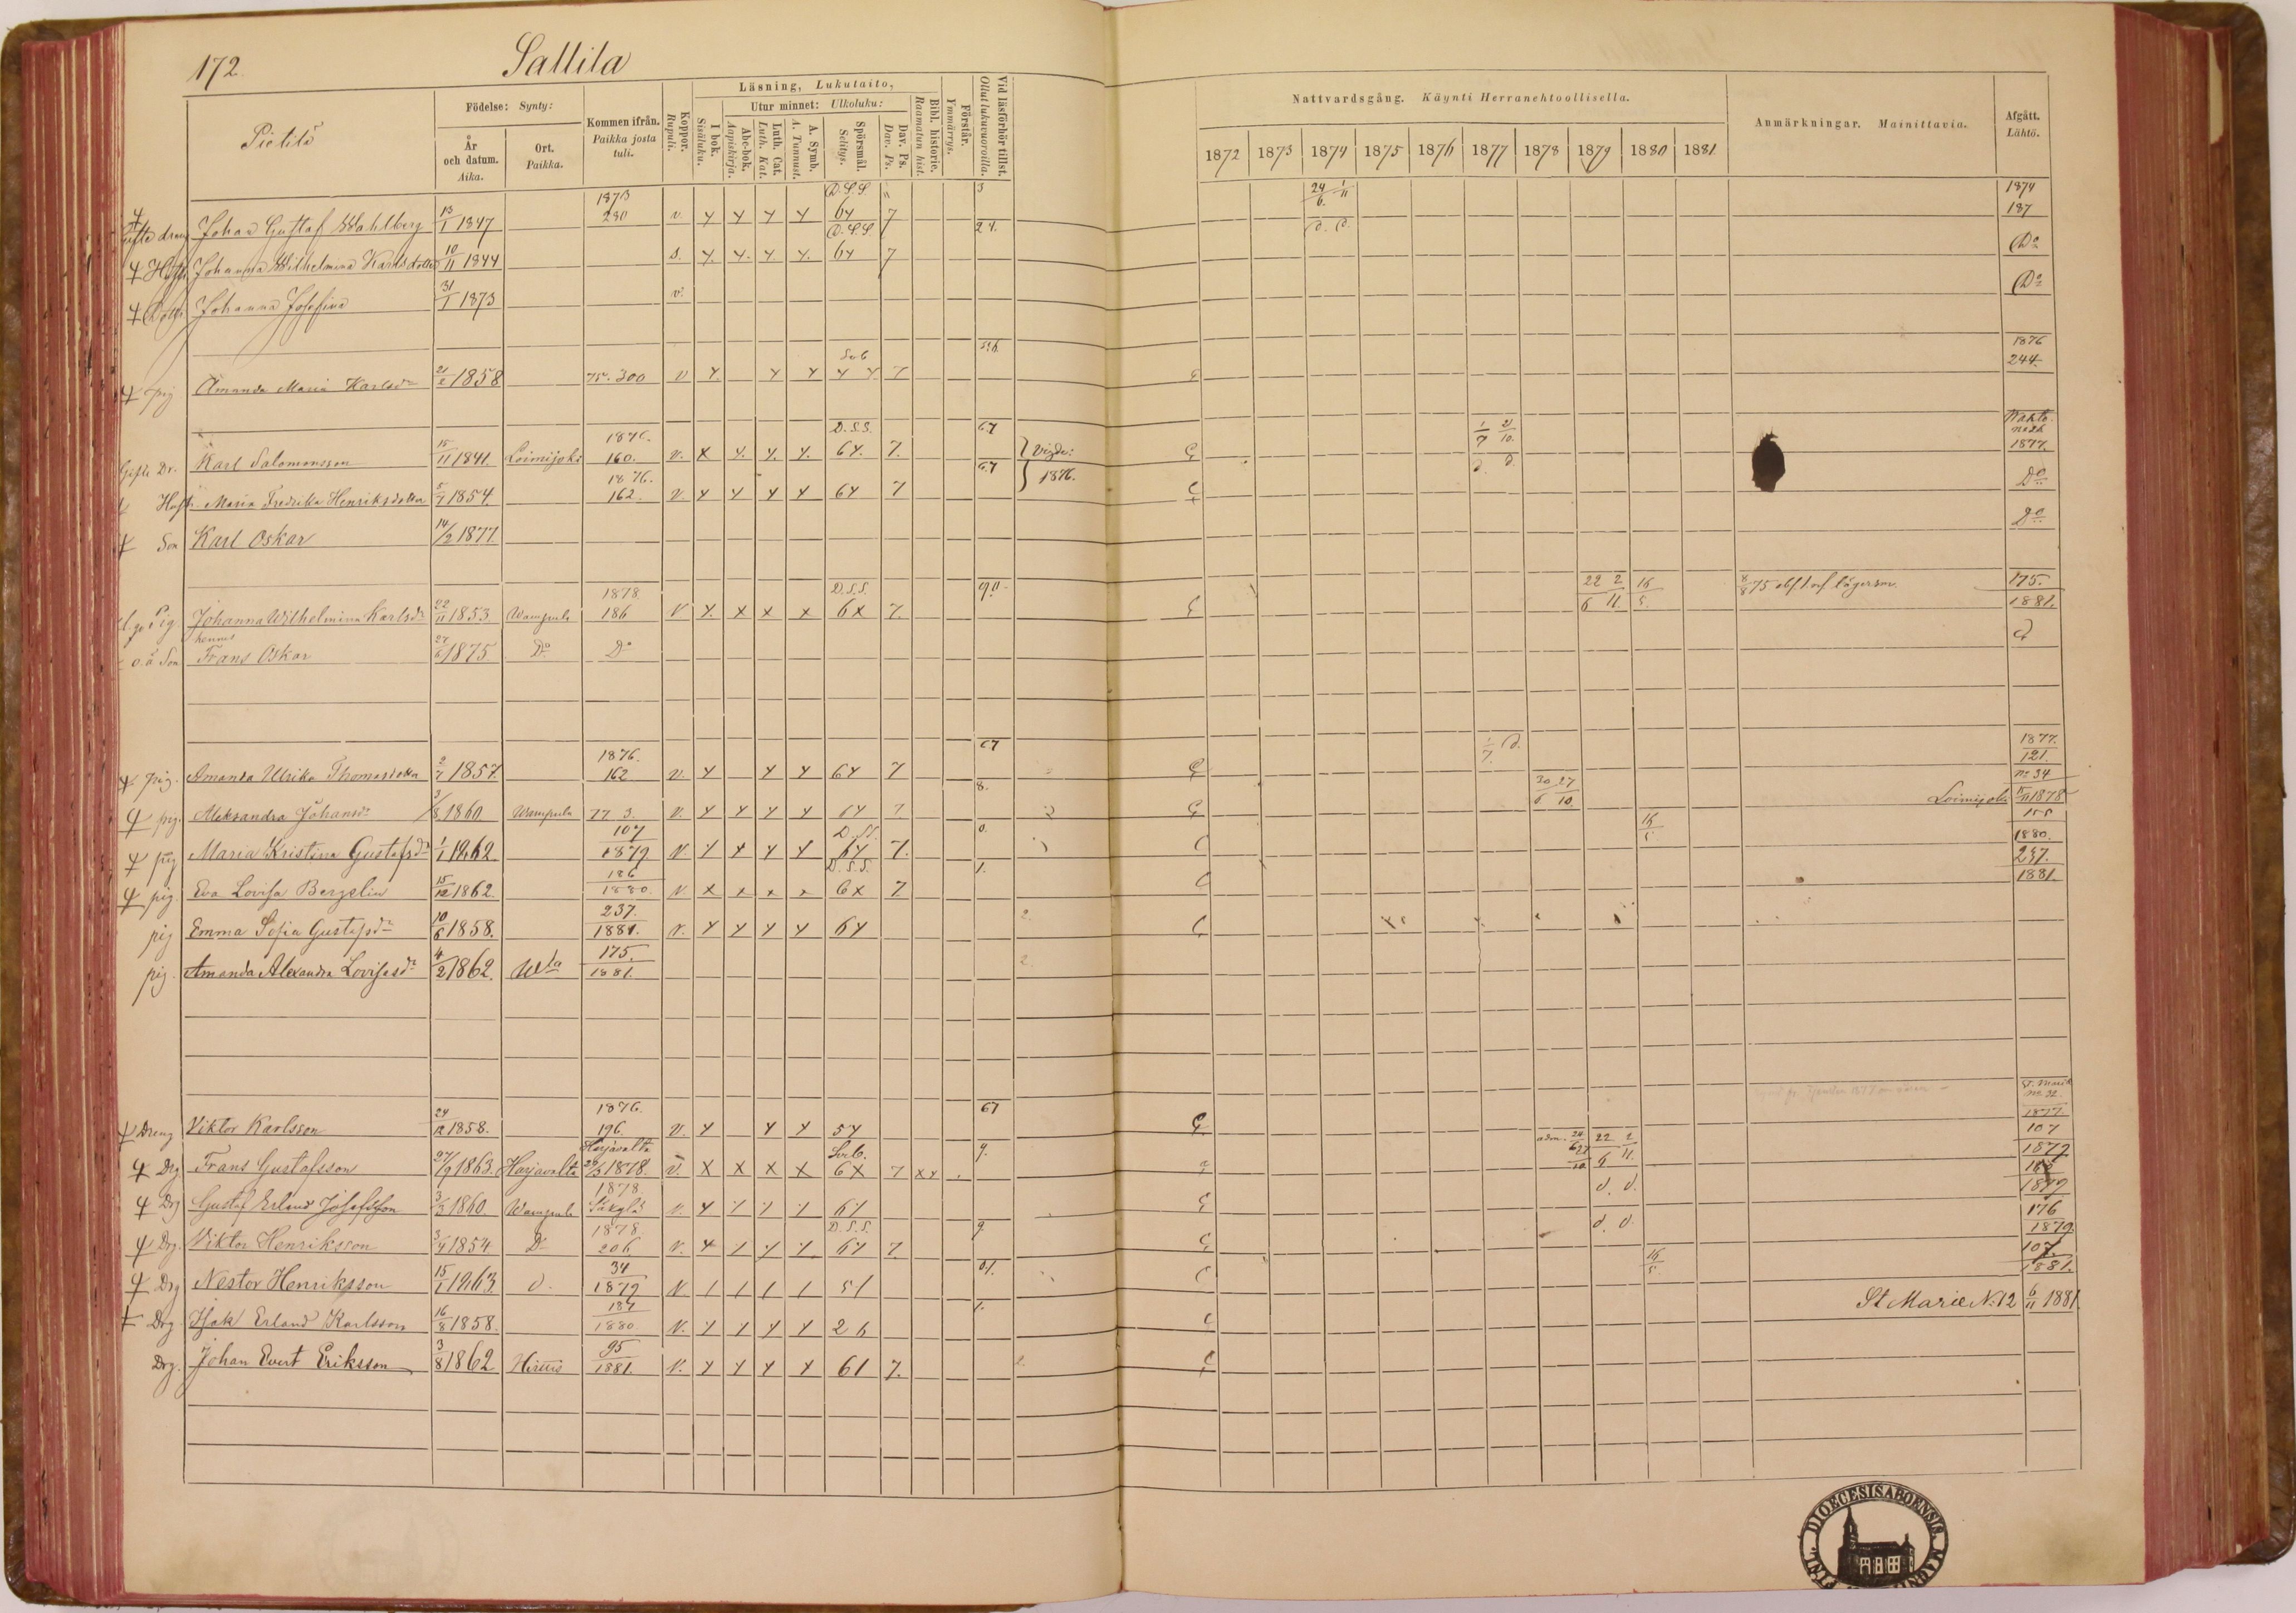 172 Sallila
Pietilä
Födelse: Synty:
År och datum. Aika.
Ort. Paikka.
Kommen ifrån. Paikka josta tuli.
Koppor. Rupuli.
Läsning, Lukutaito,
I bok. Sisäluku.
Utur minnet: Ulkoluku:
Abc-bok. Aapiskirja.
Luth. Cat. Luth. Kat.
A. Symb. A. Tunnust.
Spörsmål. Selitys.
Dav. Ps. Dav. Ps.
Bibl. historie. Raamatun hist.
Förstår. Ymmärrys.
Vid läsförhör tillst. Ollut lukuvuoroilla.
Nattvardsgång. Käynti Herranehtoollisella.
1872 1873 1874 1875 1876 1877 1878 1879 1880 1881
Anmärkningar. Mainittavia.
Afgått. Lähtö.
1873 D.S.S. 3 24/6 1/11 1874
Gifte dreng Johan Gustaf Wahlberg 13/1 1847 280 v. y y y y 64 7 187
D.S.S. 24. d. d.
Hustr. Johanna Wilhelmina Karlsdotter 10/11 1844 s. y y y y 64 7 Do
Dottr. Johanna Josefina 31/1 1873 v. Do
1876
pig Amanda Maria Karlsdr 21/2 1858 75. 300 v y y y y y 7 244.
1876. D.S.S. 67 1/7 21/10
Gifte Dr. Karl Salomonsson 15/11 1841. Loimijoki 160. v. x y. y. y. 64. 7. Vigde: 1877.
1876. 67 1876. d. d.
Hustr. Maria Fredrika Henriksdotter 5/7 1854. 162. v y y y y 64 7 Do
Son Karl Oskar 14/2 1877 Do
1878. D.S.S. 90 22/6 2/11 16/5 8/8 75 175.
Pig. Johanna Wilhelmina Karlsdr 22/11 1853 Wampula 186 v y. x x x 6x 7. 1881.
hennes
o.ä Son Frans Oskar 27/6 1875 Do Do d
1876. 67 1/7 d. 1877.
pig. Amanda Ulrika Thomasdotter 2/7 1857. 162 v. y y y 64 7 121.
8. 30/6 27/10 No 34
pig. Aleksandra Johansdr 3/8 1860 Wampula 77 3. v. y y y y 64 7 Loimijoki 1878
107 D.SS. 0. 16/5
pig Maria Kristina Gustafsdr 1/1 1862 1879 v. y y y y 64 7. 1880.
186 D.S.S. 1. 237.
pig. Eva Lovisa Bergelin 15/12 1862. 1880. v x x x x 6x 7 1881.
237. 2.
pig Emma Sofia Gustafsdr 10/6 1858. 1881. v. y y y y 64
175. 2.
pig. Amanda Alexandra Lovisasdr 4/2 1862. Wla 1881.
1876. 67 1877
Dreng Viktor Karlsson 24/12 1858. 196. v. y y y 54 107
Harjavalta 9. 22/6 2/11 1879
Drg Frans Gustafsson 27/9 1863. Harjavalta 1878. v. x x x x 6x 7 xy
1878. d. d. 1879
Drg Gustaf Erland Josefsson 3/3 1860. Wampula Säkylä v. y y y y 64 176
1878 D.S.S. 9 d. d. 1879
Drg. Viktor Henriksson 3/4 1854 Do 206 v. y y y y 64 7 107.
34 01. 16/5 1881.
Drg Nestor Henriksson 15/1 1863. d. 1879 v / / / / 51
187 1. St Marie No: 12 6/11 1881.
Drg. Isak Erland Karlsson 16/8 1858. 1880. v. y y y y 2 h
95 2.
Drg. Johan Evert Eriksson 3/8 1862 1881. v. y y y y 61 7.
FINL. DIOECESIS ABOENSIS. MAGNI